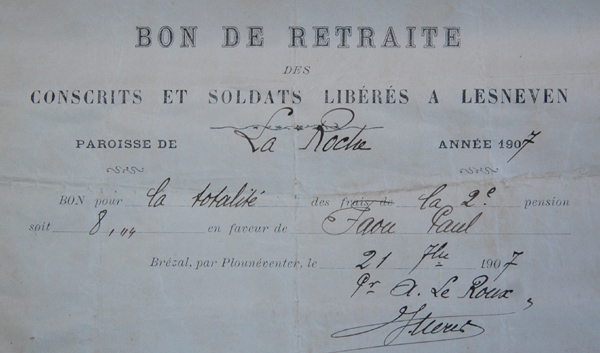 BON DE RETRAITE
DES
CONSCRITS ET SOLDATS LIBÉRÉS A LESNEVEN
PAROISSE DE La Roche ANNÉE 1907
BON pour la totalité des frais de la 2e pension
soit 8,00 en faveur de Faou Paul
Brézal, par Plounéventer, le 21 7bre 1907
Pr A. Le Roux